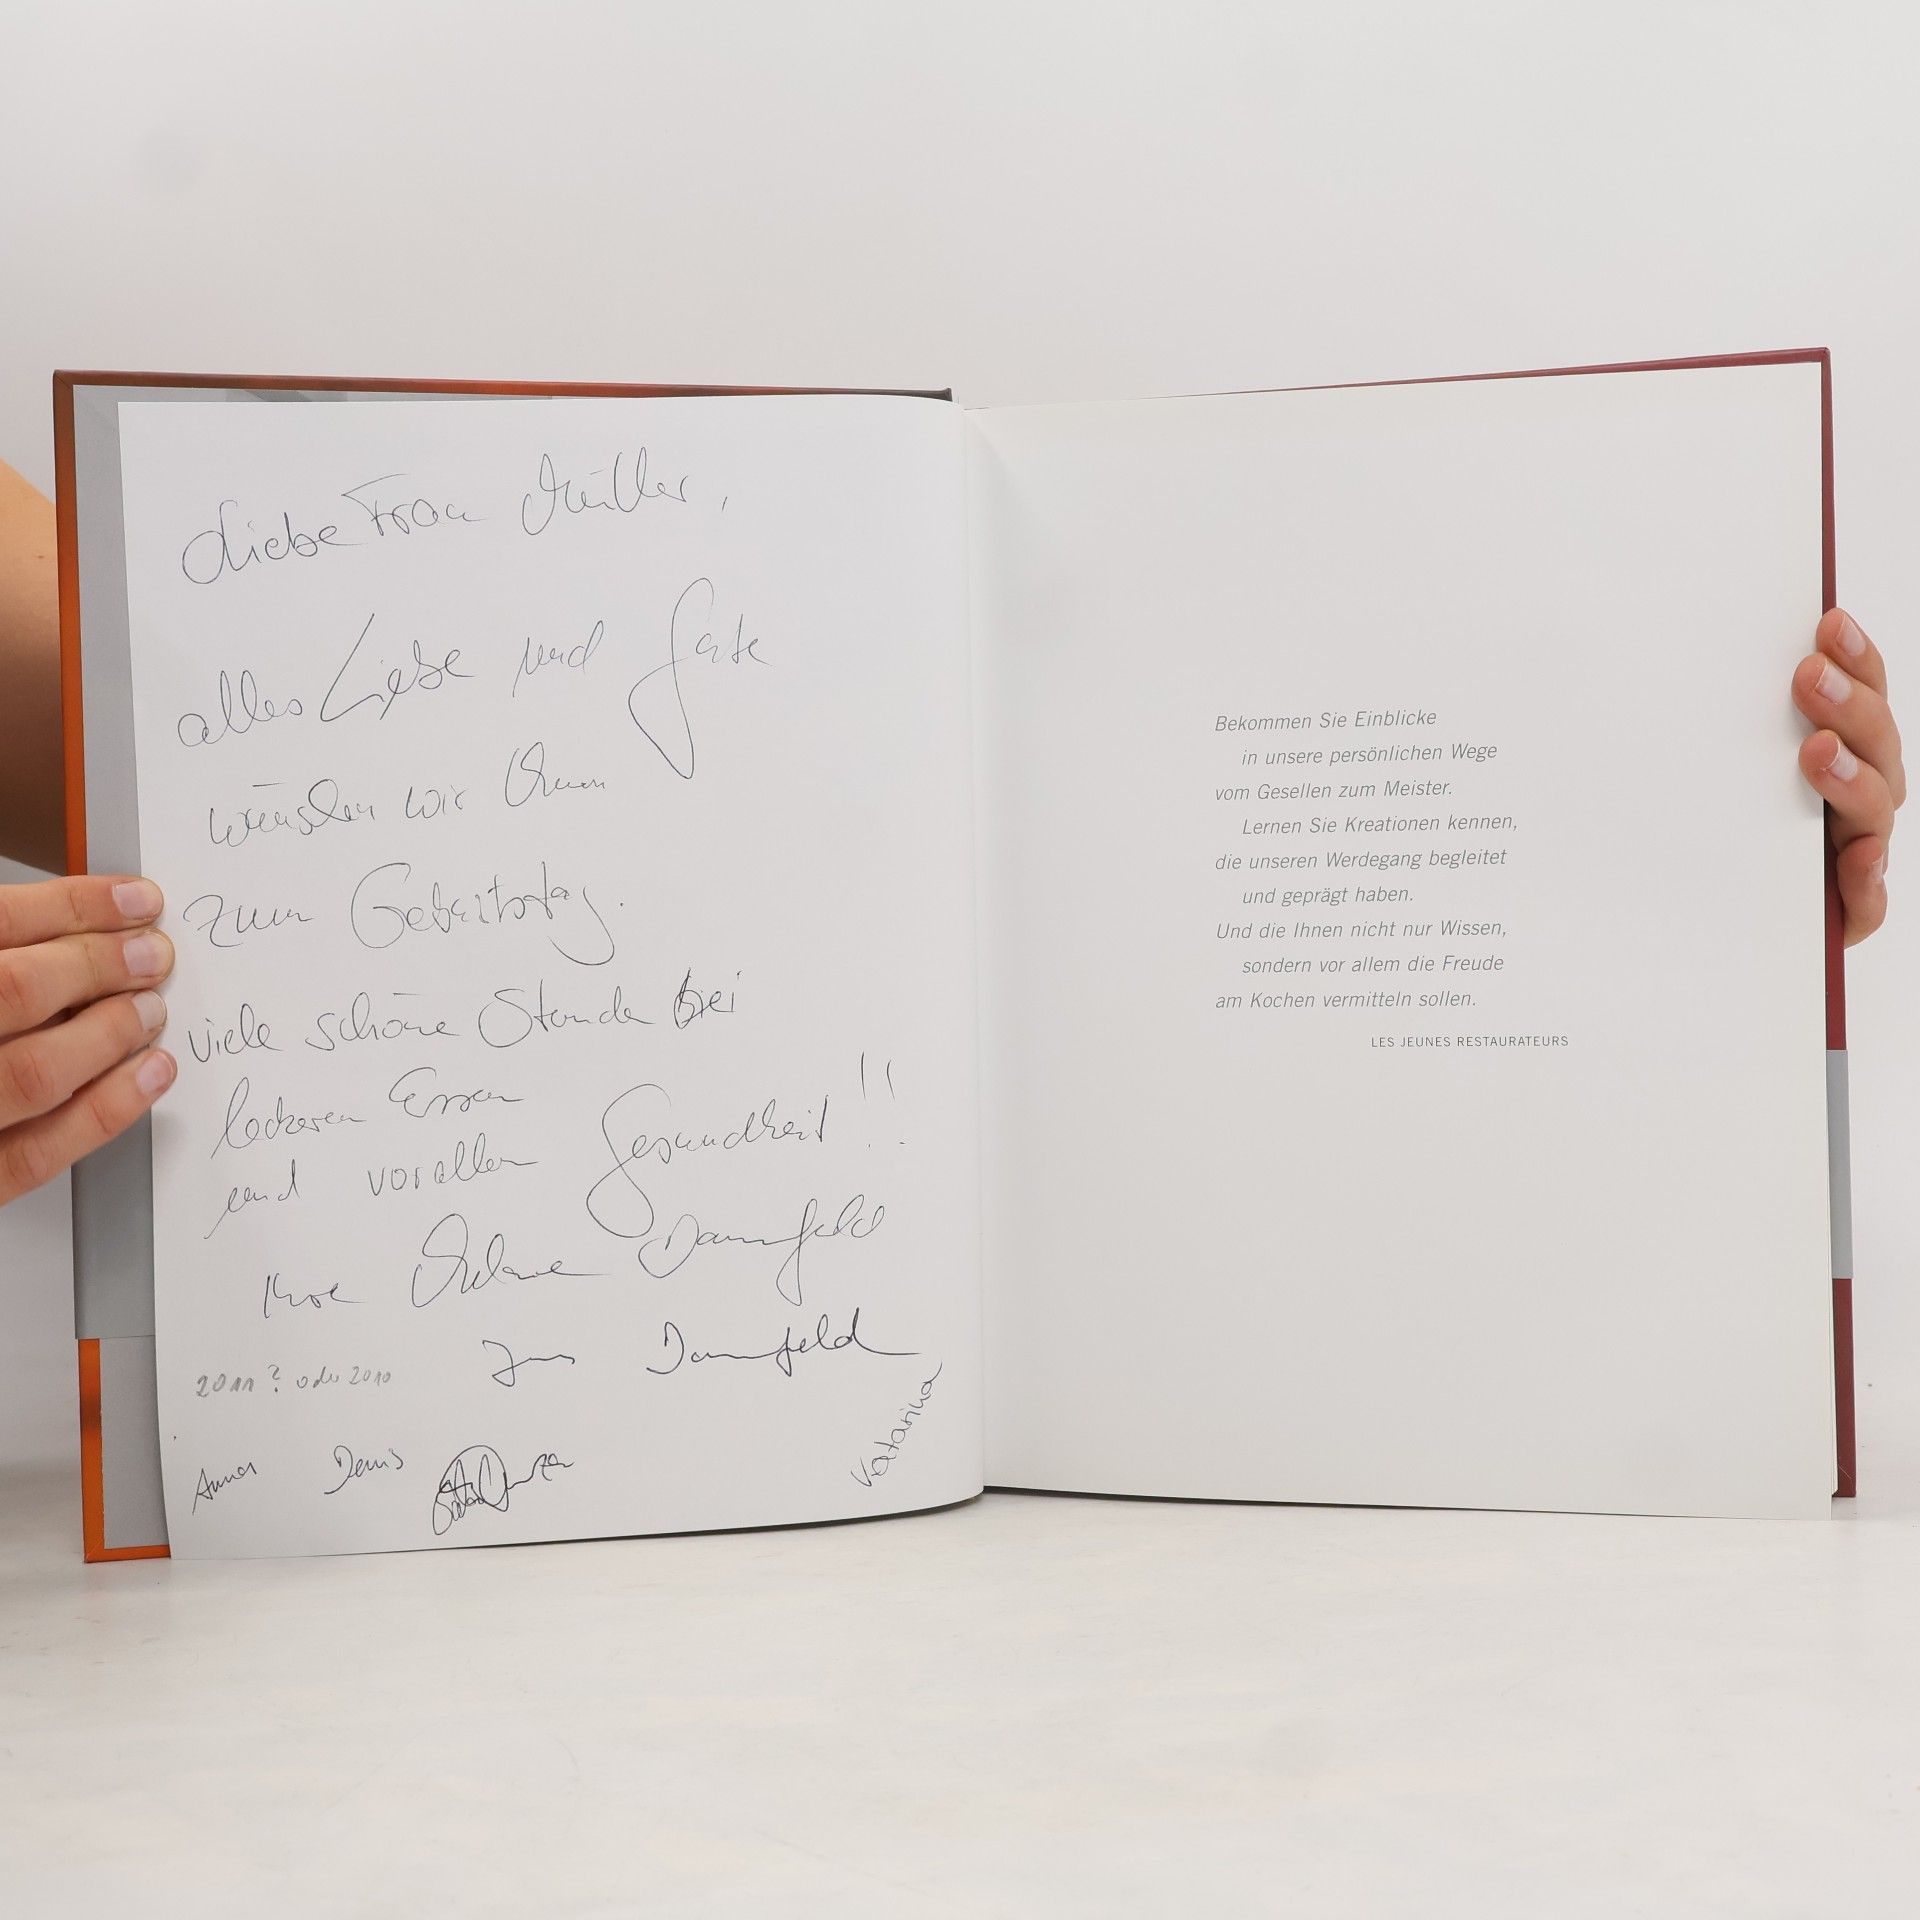 Liebe Frau Müller,
alles Liebe und Gute
wünschen wir Ihnen
zum Geburtstag.
viele schöne Stunden bei
leckeren Essen
und vorallem Gesundheit!!
Ihre Melanie Dannfeld
Jens Dannfeld
2011? oder 2010
Katarina
Anna Denis
Bekommen Sie Einblicke
in unsere persönlichen Wege
vom Gesellen zum Meister.
Lernen Sie Kreationen kennen,
die unseren Werdegang begleitet
und geprägt haben.
Und die Ihnen nicht nur Wissen,
sondern vor allem die Freude
am Kochen vermitteln sollen.
LES JEUNES RESTAURATEURS